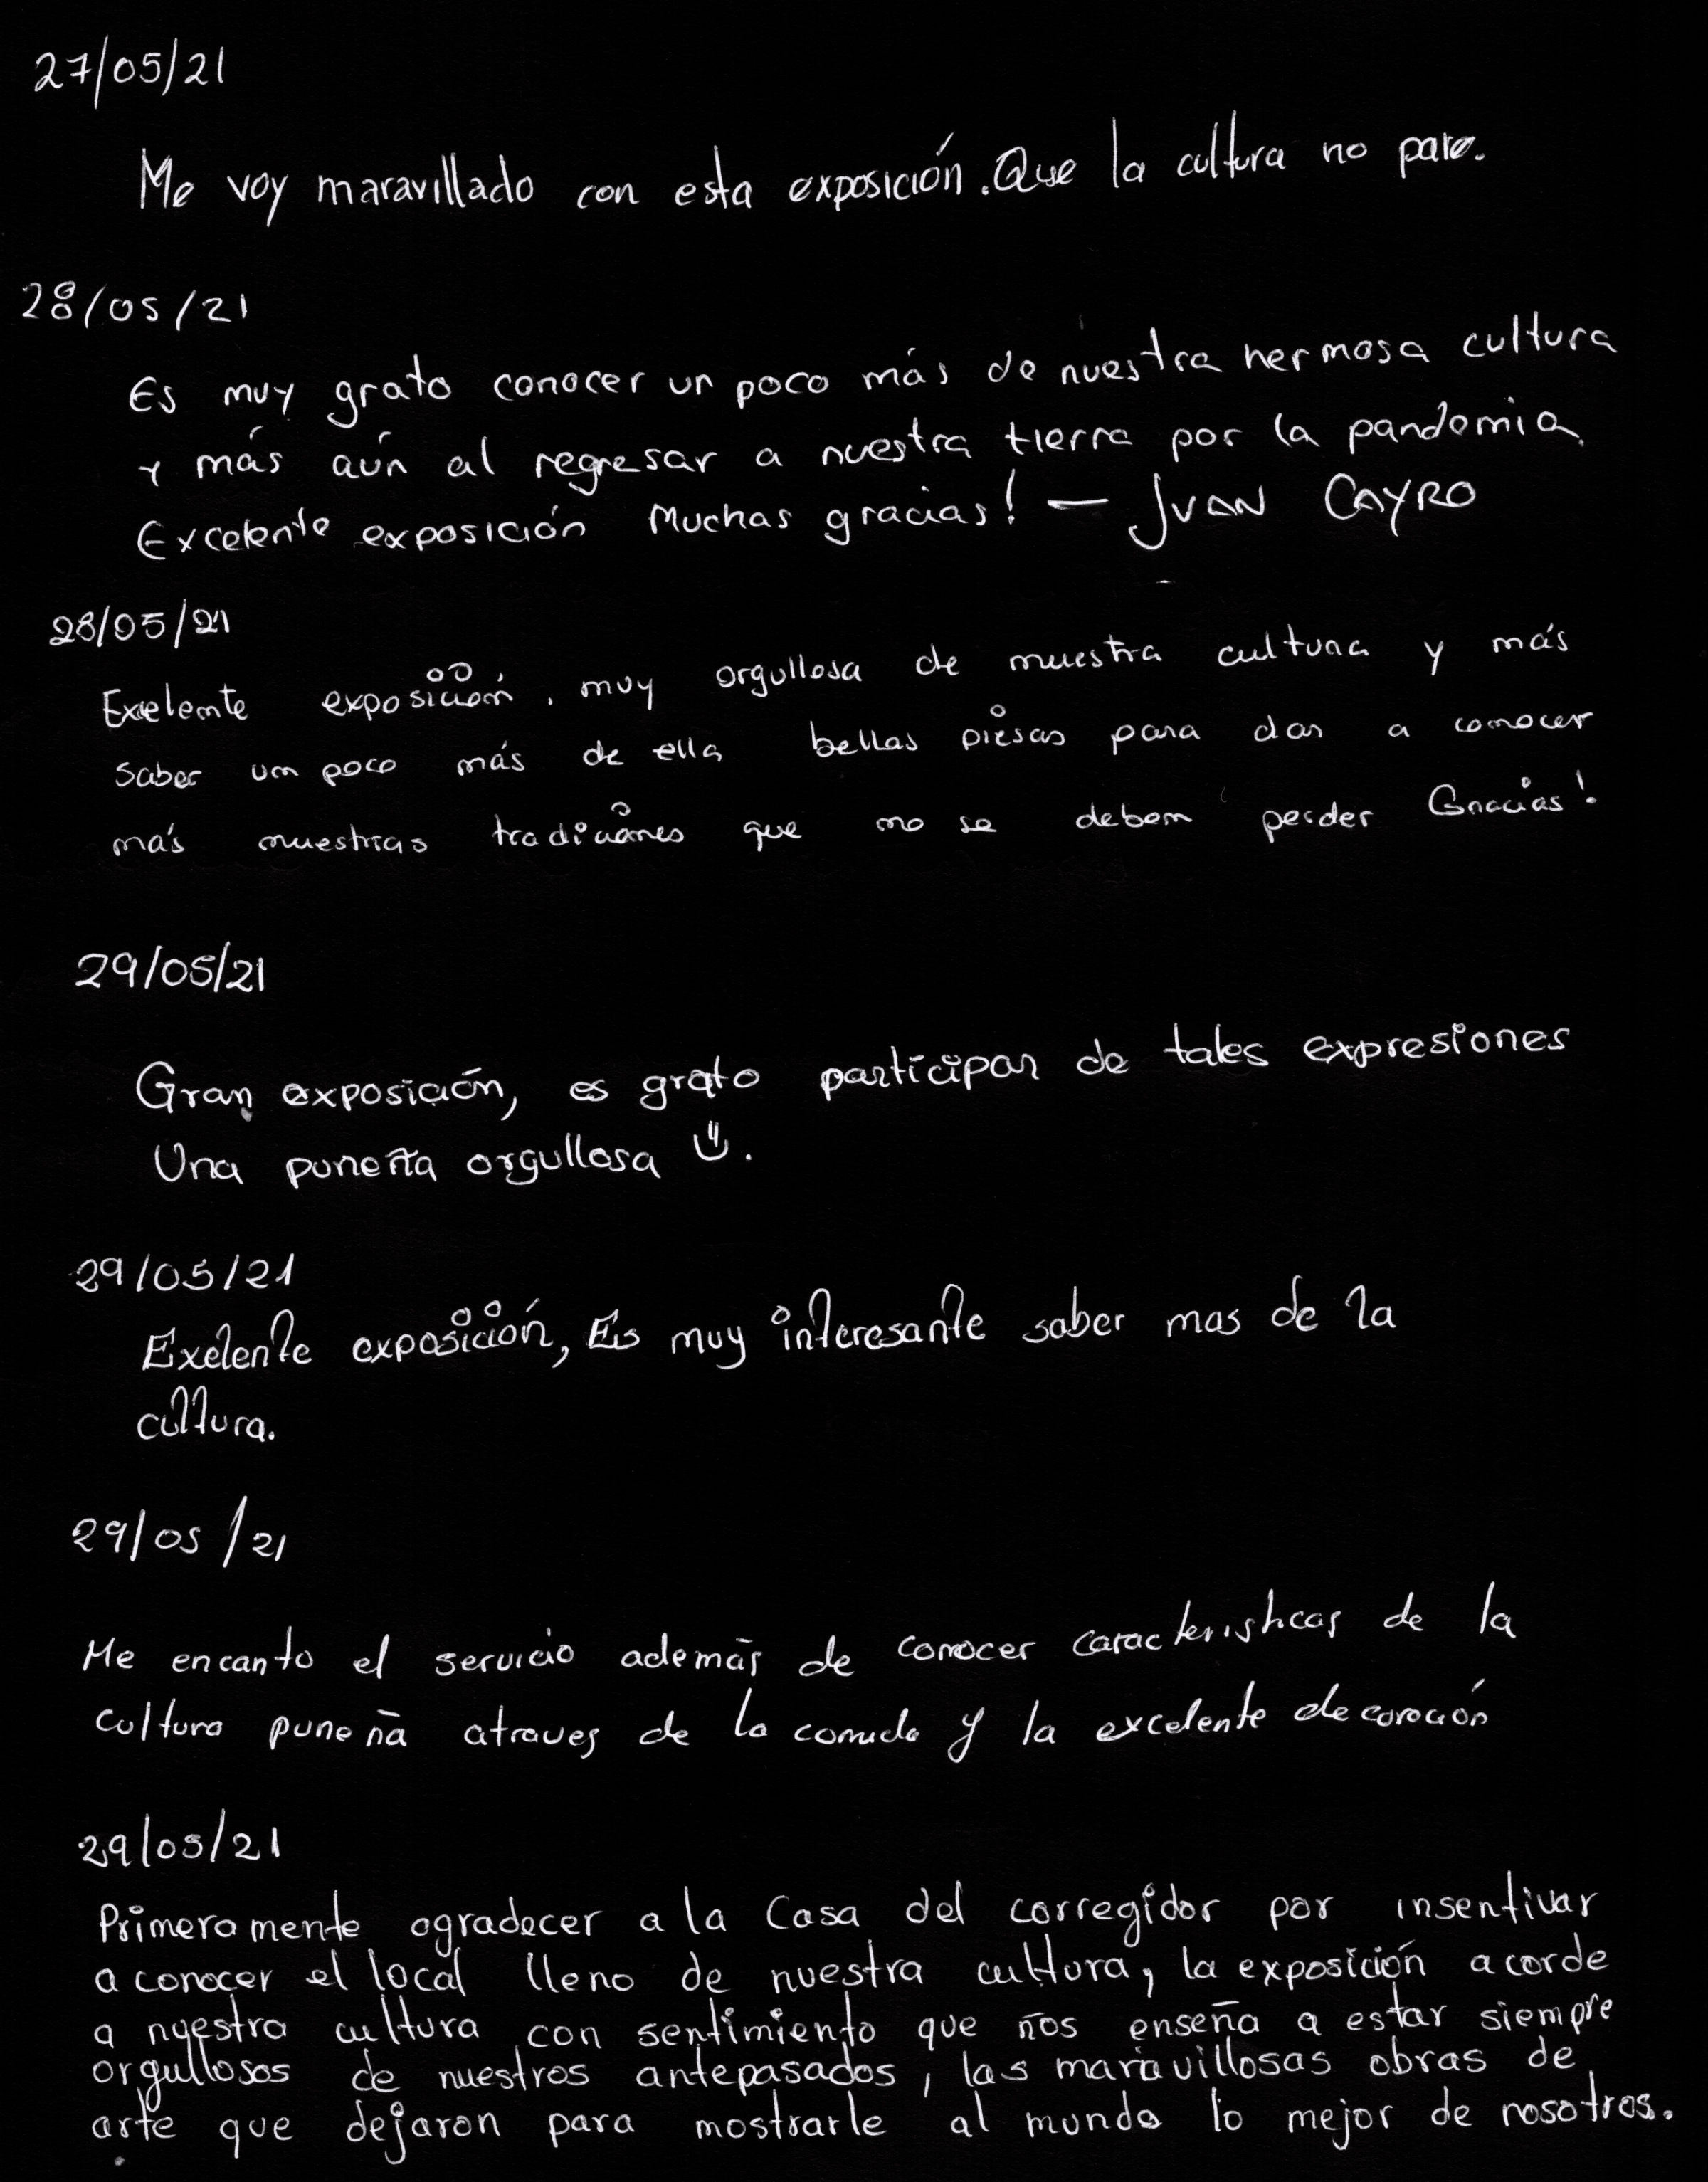 27/05/21
Me voy maravillado con esta exposición. Que la cultura no pare.
28/05/21
Es muy grato conocer un poco más de nuestra hermosa cultura
y más aún al regresar a nuestra tierra por la pandemia.
Excelente exposición Muchas gracias! — JUAN CAYRO
28/05/21
Exelente exposición, muy orgullosa de nuestra cultura y más
saber un poco más de ella bellas piesas para dar a conocer
más nuestras tradiciones que no se deben perder Gracias!
29/05/21
Gran exposición, es grato participar de tales expresiones
Una puneña orgullosa
29/05/21
Exelente exposición, Es muy interesante saber mas de la
cultura.
29/05/21
Me encanto el servicio además de conocer caracteristicas de la
cultura puneña atraves de la comida y la excelente decoración
29/05/21
Primeramente agradecer a la Casa del corregidor por insentivar
a conocer el local lleno de nuestra cultura, la exposición acorde
a nuestra cultura con sentimiento que nos enseña a estar siempre
orgullosos de nuestros antepasados, las maravillosas obras de
arte que dejaron para mostrarle al mundo lo mejor de nosotros.